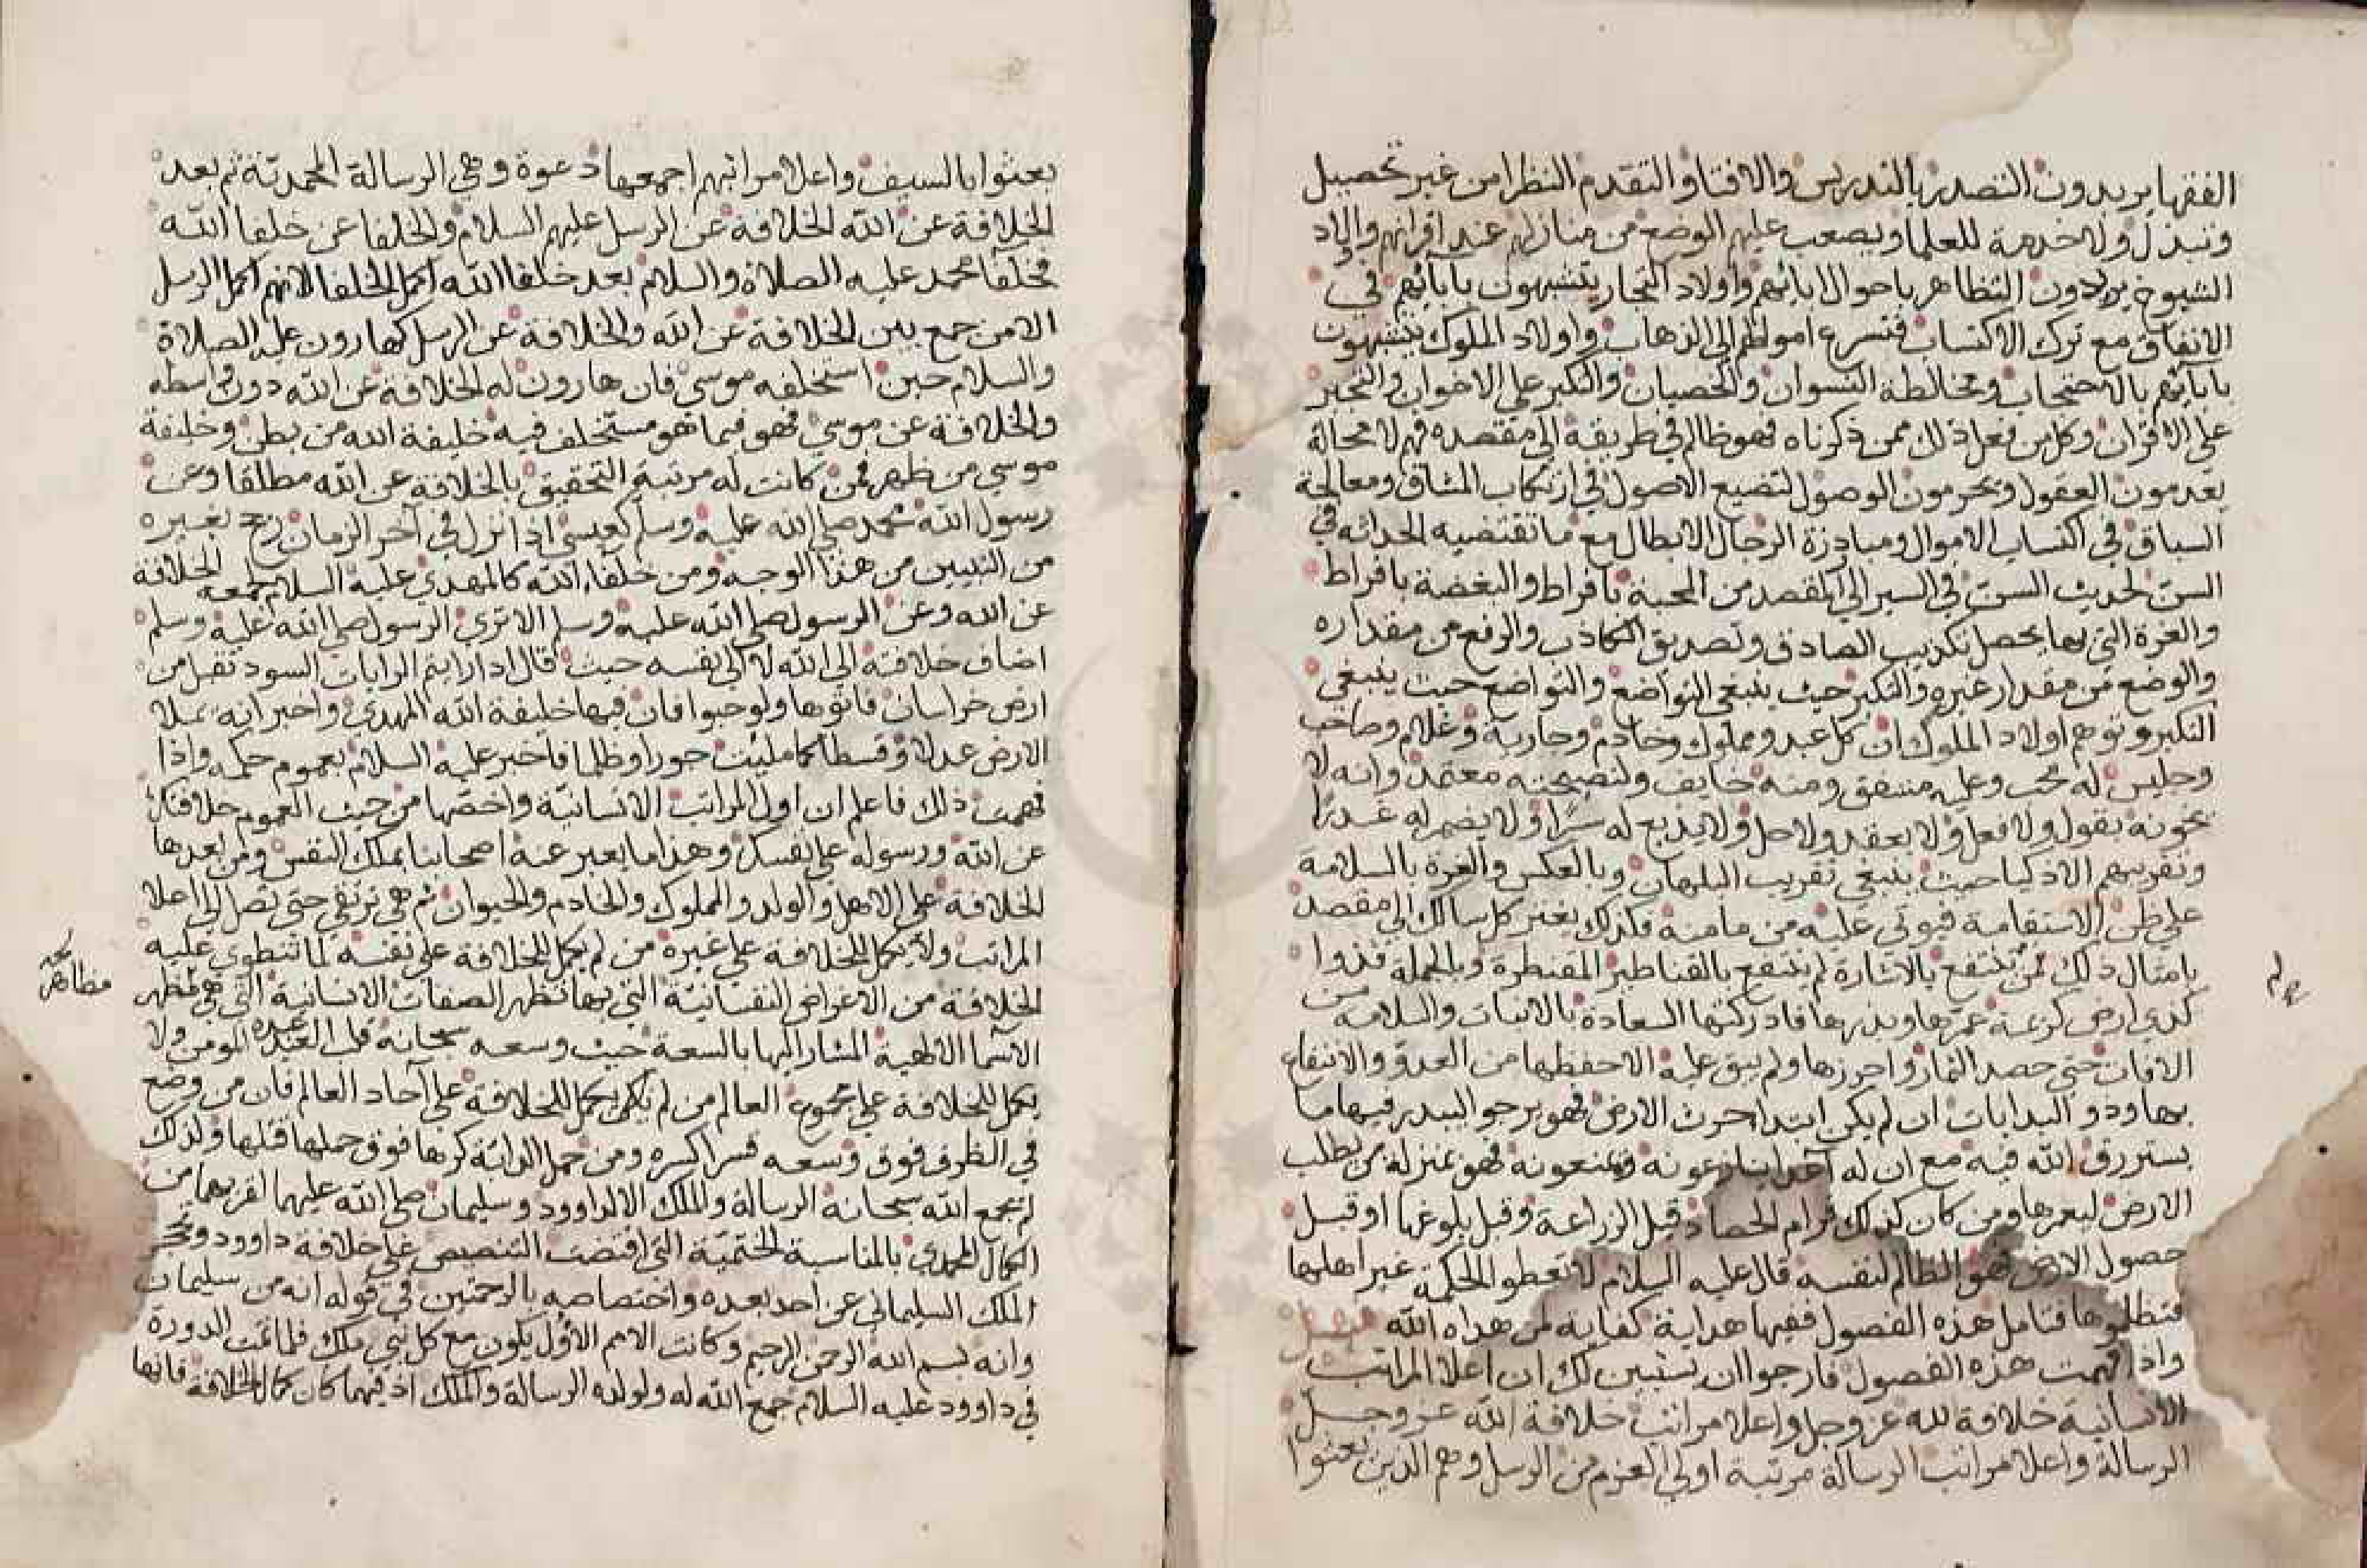 الفقها يريدون التصدر بالتدريس والافتا والتقدم النظرا من غير تحصيل
وتبذل ولا خدمة للعلما ويصعب عليهم الوضع من منازلهم عند اقرانهم واولاد
الشيوخ يريدون التظاهر باحوال ابائهم واولاد التجار يتشبهون بابائهم في
الانفاق مع ترك الاكتساب فتسرع اموالهم الى الذهاب واولاد الملوك يتشبهون
بابائهم بالاحتجاب ومخالطة النسوان والخصيان والتكبر على الاخوان والتجبر
على الاقران وكل من فعل ذلك ممن ذكرناه فهو ظالم في طريقه الى مقصده فهم لا محالة
يعدمون العقول ويحرمون الوصول لتضيع الاصول في ارتكاب المشاق ومعالجة
السباق في اكتساب الاموال ومبارزة الرجال الابطال مع ما تقتضيه الحداثه في
السن لحديث السن في السير الى المقصد من المحبة بافراط والبغضة بافراط
والغرة التي بها يحصل تكذيب الصادق وتصديق الكاذب والرفع من مقداره
والوضع من مقدار غيره والتكبر حيث ينبغي التواضع والتواضع حيث ينبغي
التكبر وتوهم اولاد الملوك ان كل عبد ومملوك وخادم وجارية وغلام وصاحب
وجليس له محب وعليه مشفق ومنه خايف ولنصيحته معتمد وانه لا
يخونه بقول ولا فعل ولا بعقد ولا حل ولا يذيع له سرا ولا يضمر له غدرا
وتقريبهم الاذكيا حيث ينبغي تقريب البلهان وبالعكس والغرة بالسلامة
على ظن الاستقامة فيوتى عليه من مامنه فكذلك يغتر كل سالك الى مقصد
بامثال ذلك فمن لم ينتفع بالاشارة لم ينتفع بالقناطير المقنطرة وبالجملة فذوا
كذي ارض كريمة عمرها وبذرها فادركتها السعادة بالانبات والسلامة من
الافات حتى حصد الثمار واحرزها ولم يبق عليه الا حفظها من العدو والانتفاع
بها وذو البدايات ان لم يكن ابتدا حرث الارض فهو يرجو البيدر فيها ما
يسترزق الله فيه مع ان له اعداء ينازعونه ويمنعونه فهو بمنزلة من يطلب
الارض ليعمرها ومن كان كذلك فرام الحصاد قبل الزراعة وقبل بلوغها او قبل
حصول الارض فهو الظالم لنفسه قال عليه السلام لا تعطو الحكمة غير اهلها
فتظلموها فتامل هذه الفصول ففيها هداية كفاية لمن هداه الله فصل
واذا فهمت هذه الفصول فارجوا ان يستبين لك ان اعلا المراتب
الانسانية خلافة لله عز وجل واعلا مراتب خلافة الله عز وجل
الرسالة واعلا مراتب الرسالة مرتبة اولي العزم من الرسل وهم الذين بعثوا
بعثوا بالسيف واعلا مراتبهم اجمعها دعوة وهي الرسالة المحمدية ثم بعد
الخلافة عن الله الخلافة عن الرسل عليهم السلام والخلفا عن خلفا الله
فخلفا محمد عليه الصلاة والسلام بعد خلفا الله اكمل الخلفا لانهم اكمل الرسل
الا من جمع بين الخلافة عن الله والخلافة عن الرسل كهارون عليه الصلاة
والسلام حين استخلفه موسى فان هارون له الخلافة عن الله دون واسطه
والخلافة عن موسى فهو فيما هو مستخلف فيه خليفة الله من بطن وخليفة
موسى من ظهر فمن كانت له مرتبة التحقيق بالخلافة عن الله مطلقا وعن
رسول الله محمد صلى الله عليه وسلم كعيسى اذا نزل في آخر الزمان رجح بغيره
من النبيين من هذا الوجه ومن خلفاء الله كالمهدي عليه السلام لجمعه الخلافة
عن الله وعن الرسول صلى الله عليه وسلم الا ترى الرسول صلى الله عليه وسلم
اضاف خلافته الى الله لا الى نفسه حيث قال اذا رايتم الرايات السود تقبل من
ارض خراسان فاتوها ولو حبوا فان فيها خليفة الله المهدي واخبر انه يملا
الارض عدلا وقسطا كما مليت جورا وظلما فاخبر عليه السلام بعموم حكمه واذا
فهمت ذلك فاعلم ان اول المراتب الانسانية واخصها من حيث العموم خلافتك
عن الله ورسوله على نفسك وهذا ما يعبر عنه اصحابنا بملك النفس ومن بعدها
الخلافة على الاهل والولد والمملوك والخادم والحيوان ثم هي ترتقي حتى تصل الى اعلا
المراتب ولا يكمل للخلافة على غيره من لم يكمل للخلافة على نفسه لما تنطوي عليه
الخلافة من الاعراض النفسانية التي بها تظهر الصفات الانسانية التي هي مظهر
مظاهر
الاسما الالهية المشار اليها بالسعة حيث وسعه سبحانه قلب العبد عبده المومن ولا
يكمل للخلافة على مجموع العالم من لم يكن يكمل للخلافة على آحاد العالم فان من وضع
في الظرف فوق وسعه قسرا كسره ومن حمل الدابة كرها فوق حملها قتلها ولذلك
لم يجمع الله سبحانه الرسالة والملك الا لداوود وسليمان صلى الله عليهما لقربهما من
الكمال المحمدي بالمناسبة الختمية التي اقتضت التنصيص على خلافة داوود وتحجر
الملك السليماني عن احد بعده واختصاصه بالرحمتين في قوله انه من سليمان
وانه بسم الله الرحمن الرحيم وكانت الامم الاول يكون مع كل نبي ملك فلما تمت الدورة
في داوود عليه السلام جمع الله له ولولده الرسالة والملك اذ فيهما كان كمال الخلافة فانها